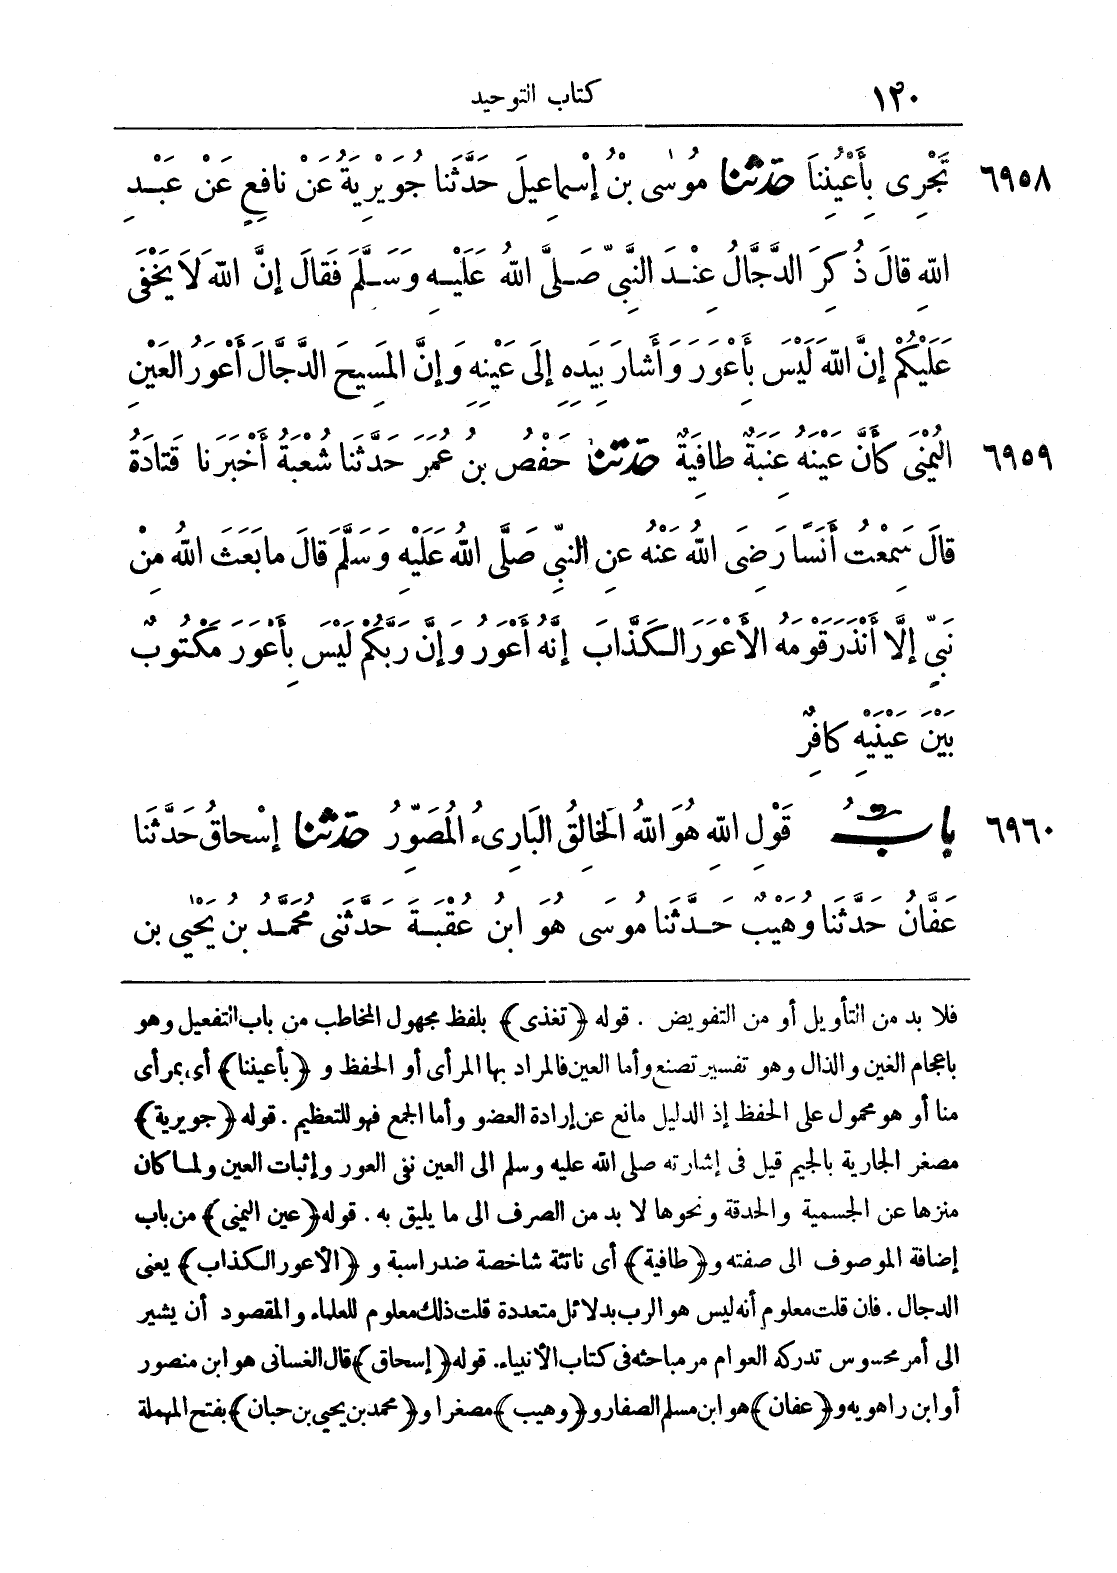 ١٢٠ كتاب التوحيد
٦٩٥٨ تَجْرِى بِأَعْيُنِنَا حَدَّثَنَا مُوسَى بْنُ إِسْمَاعِيلَ حَدَّثَنَا جُوَيْرِيَةُ عَنْ نَافِعٍ عَنْ عَبْدِ
اللهِ قَالَ ذُكِرَ الدَّجَّالُ عِنْدَ النَّبِىِّ صَلَّى اللهُ عَلَيْهِ وَسَلَّمَ فَقَالَ إِنَّ اللهَ لَا يَخْفَى
عَلَيْكُمْ إِنَّ اللهَ لَيْسَ بِأَعْوَرَ وَأَشَارَ بِيَدِهِ إِلَى عَيْنِهِ وَإِنَّ المَسِيحَ الدَّجَّالَ أَعْوَرُ العَيْنِ
٦٩٥٩ اليُمْنَى كَأَنَّ عَيْنَهُ عِنَبَةٌ طَافِيَةٌ حَدَّثَنَا حَفْصُ بْنُ عُمَرَ حَدَّثَنَا شُعْبَةُ أَخْبَرَنَا قَتَادَةُ
قَالَ سَمِعْتُ أَنَسًا رَضِىَ اللهُ عَنْهُ عَنِ النَّبِىِّ صَلَّى اللهُ عَلَيْهِ وَسَلَّمَ قَالَ مَا بَعَثَ اللهُ مِنْ
نَبِىٍّ إِلَّا أَنْذَرَ قَوْمَهُ الأَعْوَرَ الكَذَّابَ إِنَّهُ أَعْوَرُ وَإِنَّ رَبَّكُمْ لَيْسَ بِأَعْوَرَ مَكْتُوبٌ
بَيْنَ عَيْنَيْهِ كَافِرٌ
٦٩٦٠ بابُ قَوْلِ اللهِ هُوَ اللهُ الخَالِقُ البَارِىءُ المُصَوِّرُ حَدَّثَنَا إِسْحَاقُ حَدَّثَنَا
عَفَّانُ حَدَّثَنَا وُهَيْبٌ حَدَّثَنَا مُوسَى هُوَ ابْنُ عُقْبَةَ حَدَّثَنِى مُحَمَّدُ بْنُ يَحْيَى بْنِ
فلا بد من التأويل أو من التفويض . قوله ﴿تغذى﴾ بلفظ مجهول المخاطب من باب التفعيل وهو
باعجام الغين والذال وهو تفسير تصنع وأما العين فالمراد بها المرأى أو الحفظ و ﴿بأعيننا﴾ أى بمرأى
منا أو هو محمول على الحفظ إذ الدليل مانع عن إرادة العضو وأما الجمع فهو للتعظيم . قوله ﴿جويرية﴾
مصغر الجارية بالجيم قيل فى إشارته صلى الله عليه وسلم الى العين نفى العور وإثبات العين ولما كان
منزها عن الجسمية والحدقة ونحوها لا بد من الصرف الى ما يليق به . قوله ﴿عين اليمنى﴾ من باب
إضافة الموصوف الى صفته و ﴿طافية﴾ أى ناتئة شاخصة ضد راسبة و ﴿الأعور الكذاب﴾ يعنى
الدجال . فان قلت معلوم أنه ليس هو الرب بدلائل متعددة قلت ذلك معلوم للعلماء والمقصود أن يشير
الى أمر محسوس تدركه العوام مر مباحثه فى كتاب الأنبياء. قوله ﴿إسحاق﴾ قال الغسانى هو ابن منصور
أو ابن راهويه و ﴿عفان﴾ هو ابن مسلم الصفار و ﴿وهيب﴾ مصغرا و ﴿محمد بن يحيى بن حبان﴾ بفتح المهملة